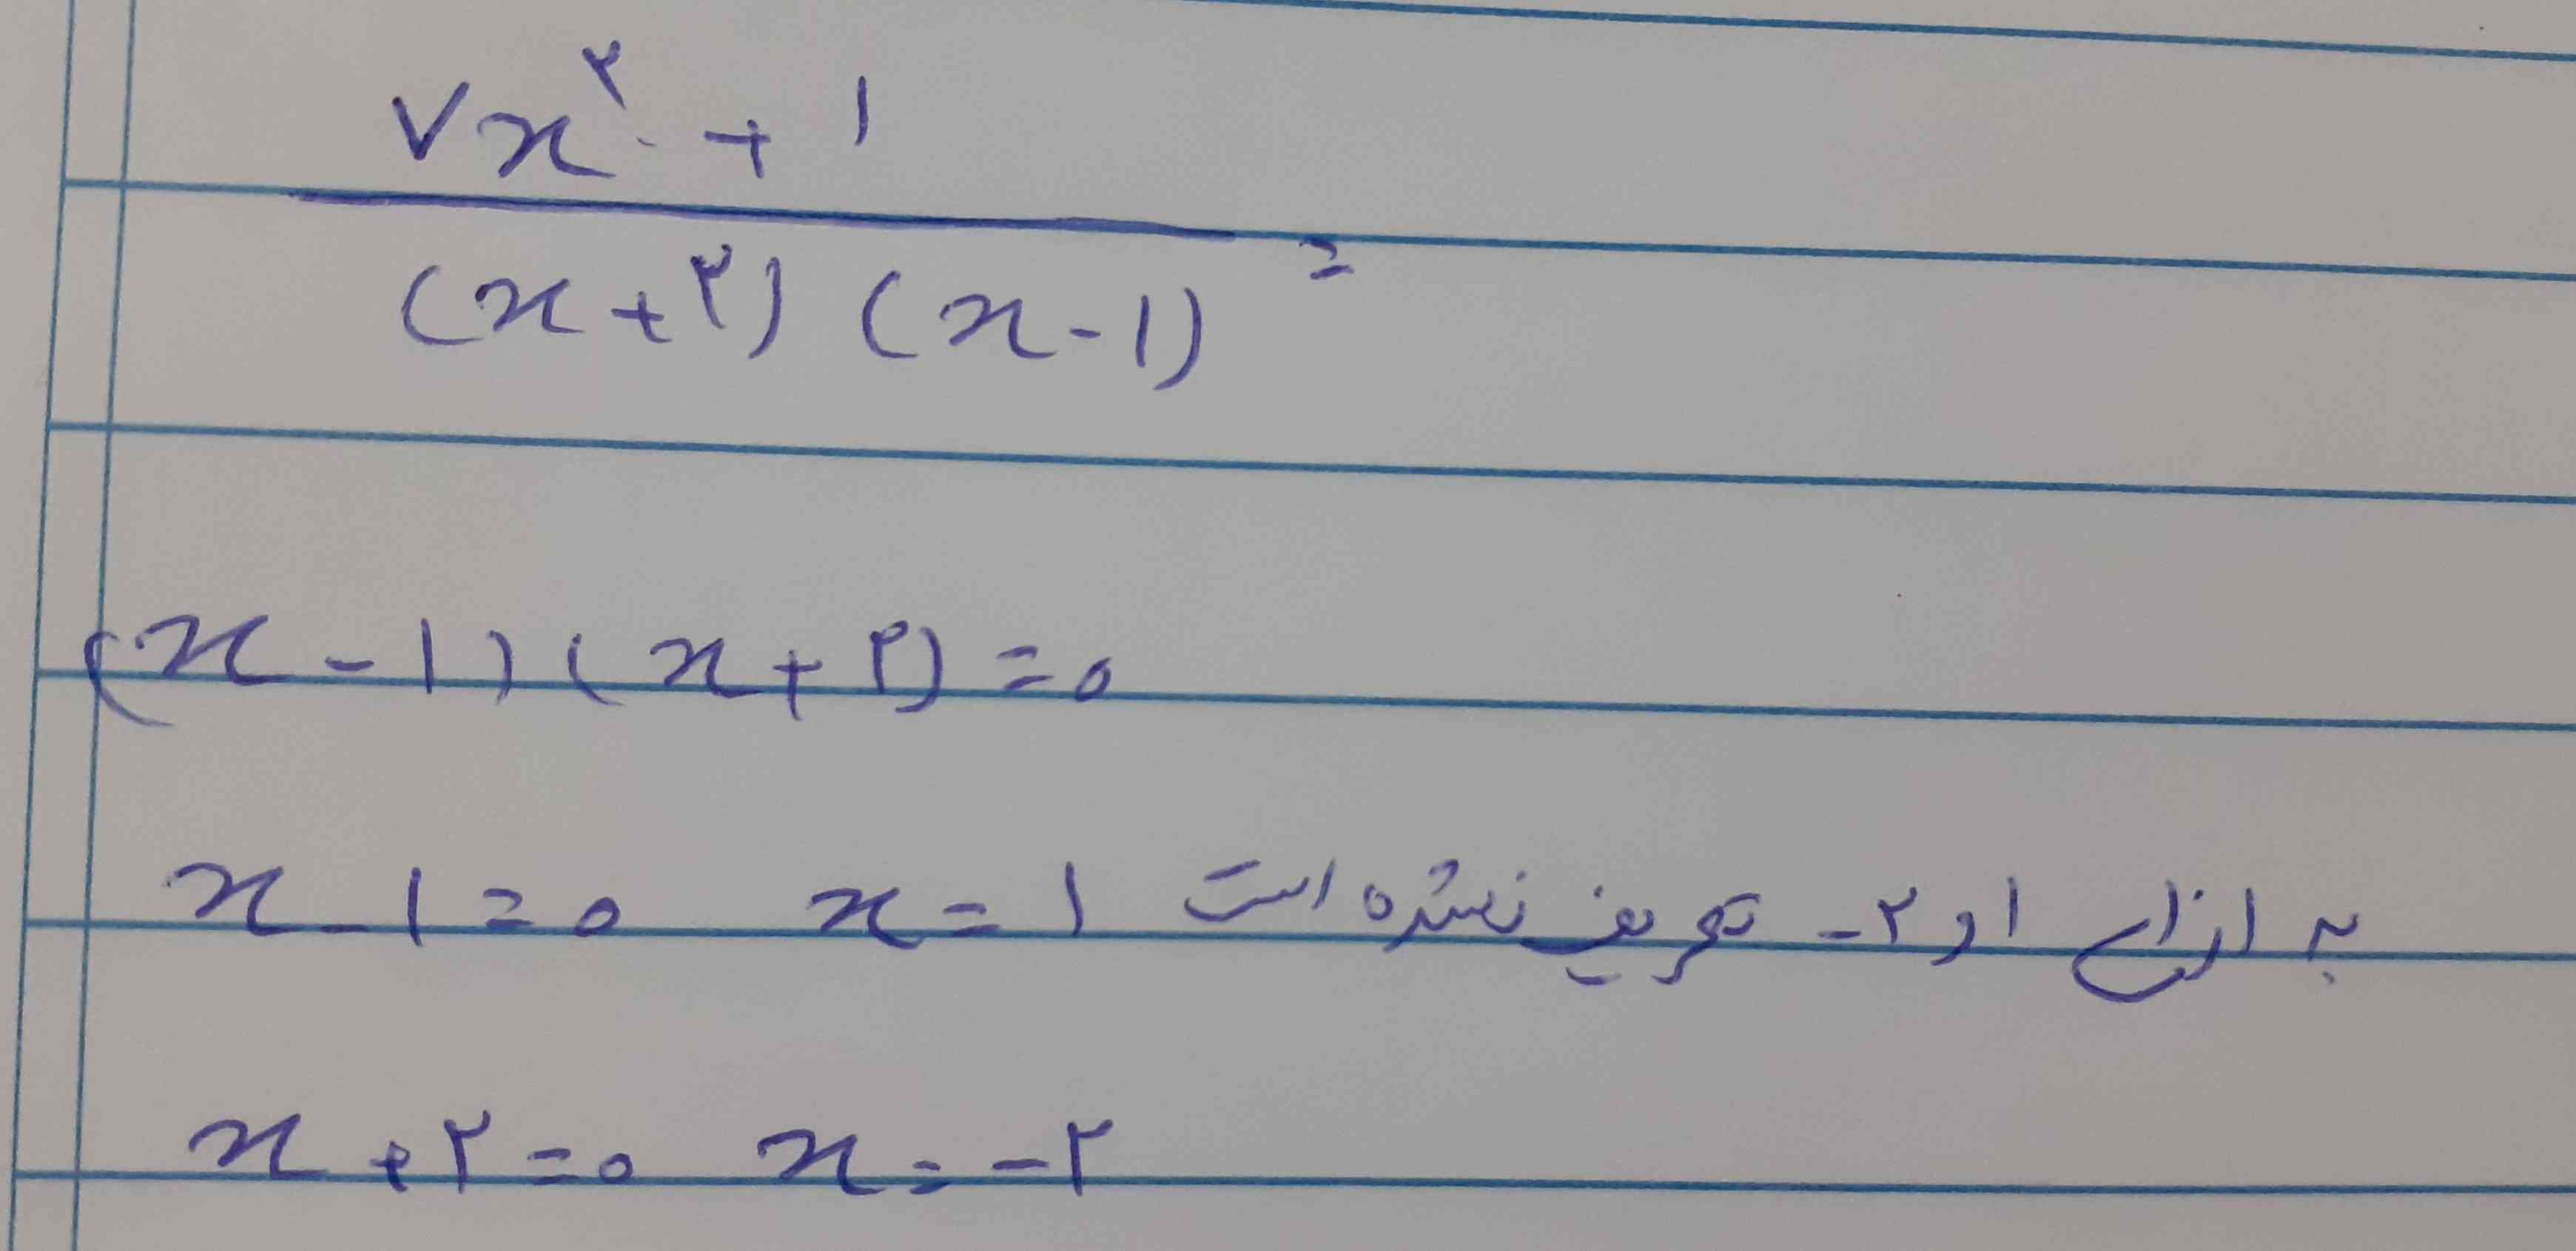 ۷x^۲ + ۱
(x+۲) (x-۱) =
(x-۱) (x+۲) = ۰
x-۱=۰ x=۱ به ازای ۱ و ۲- تعریف نشده است
x+۲=۰ x=-۲